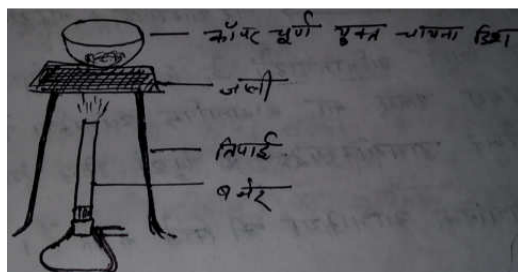 कॉपर चूर्ण युक्त चायना डिश
जाली
तिपाई
बर्नर